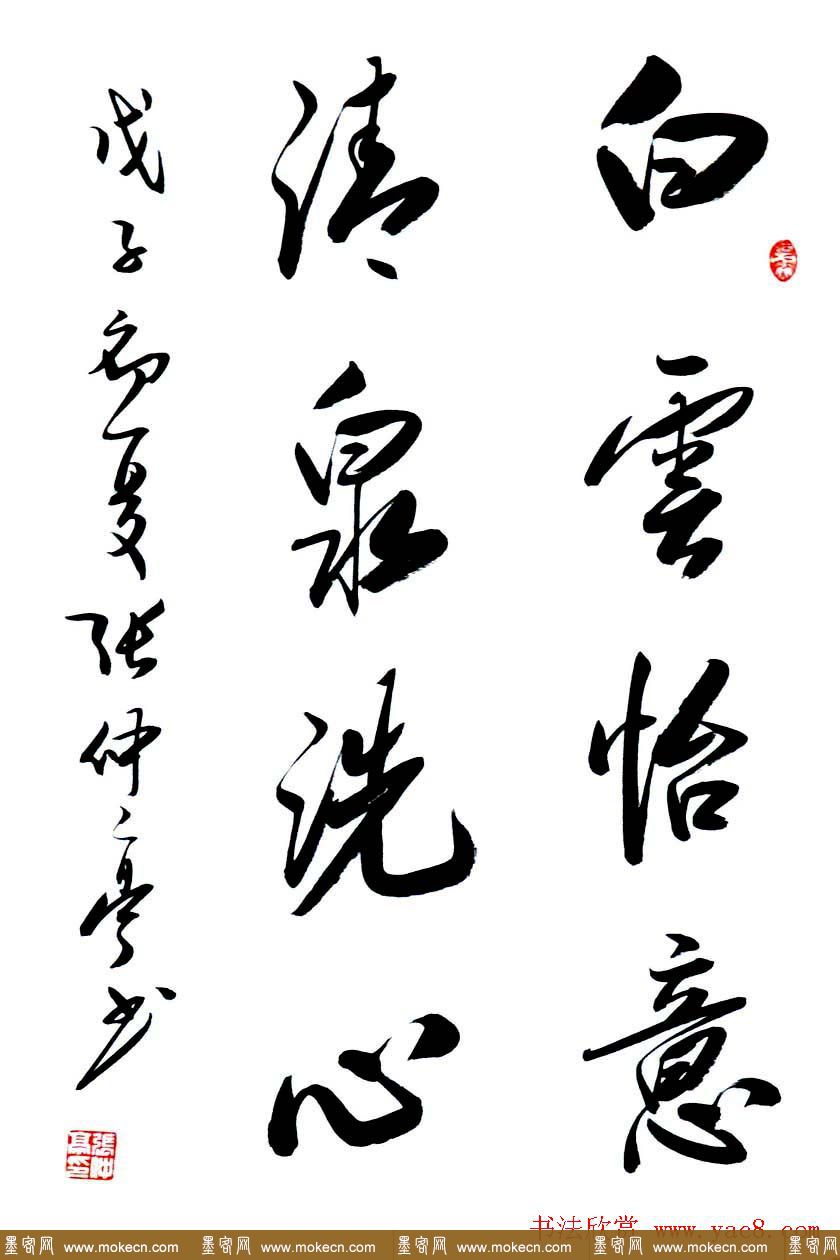 白雲怡意
清泉洗心
戊子初夏张仲亭书
張仲亭印
书法欣赏 www.yac8.com
墨客网 www.mokecn.com 墨客网 www.mokecn.com 墨客网 www.mokecn.com 墨客网 www.mokecn.com 墨客网 www.mokecn.com